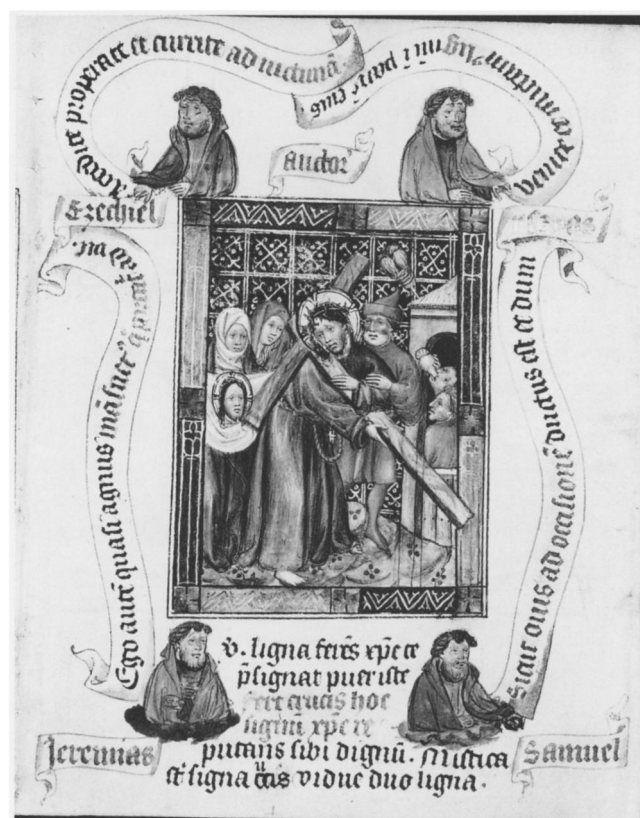 Accedite properate et currite ad
lig nū ī panē eius
Auctor
Ezechiel
Ego autē quasi agnus māsuet⁹ q̄ portat᷒ ad vic.
Sicut ouis ad occisionē ductus est et dum
v. ligna ferēs xp̄e te
p̄signat puer iste
fert crucis hoc
lignū xp̄c re
putans sibi dignū. Mistica
st̄ signa c̄cis vidue duo ligna.
Jeremias
Samuel